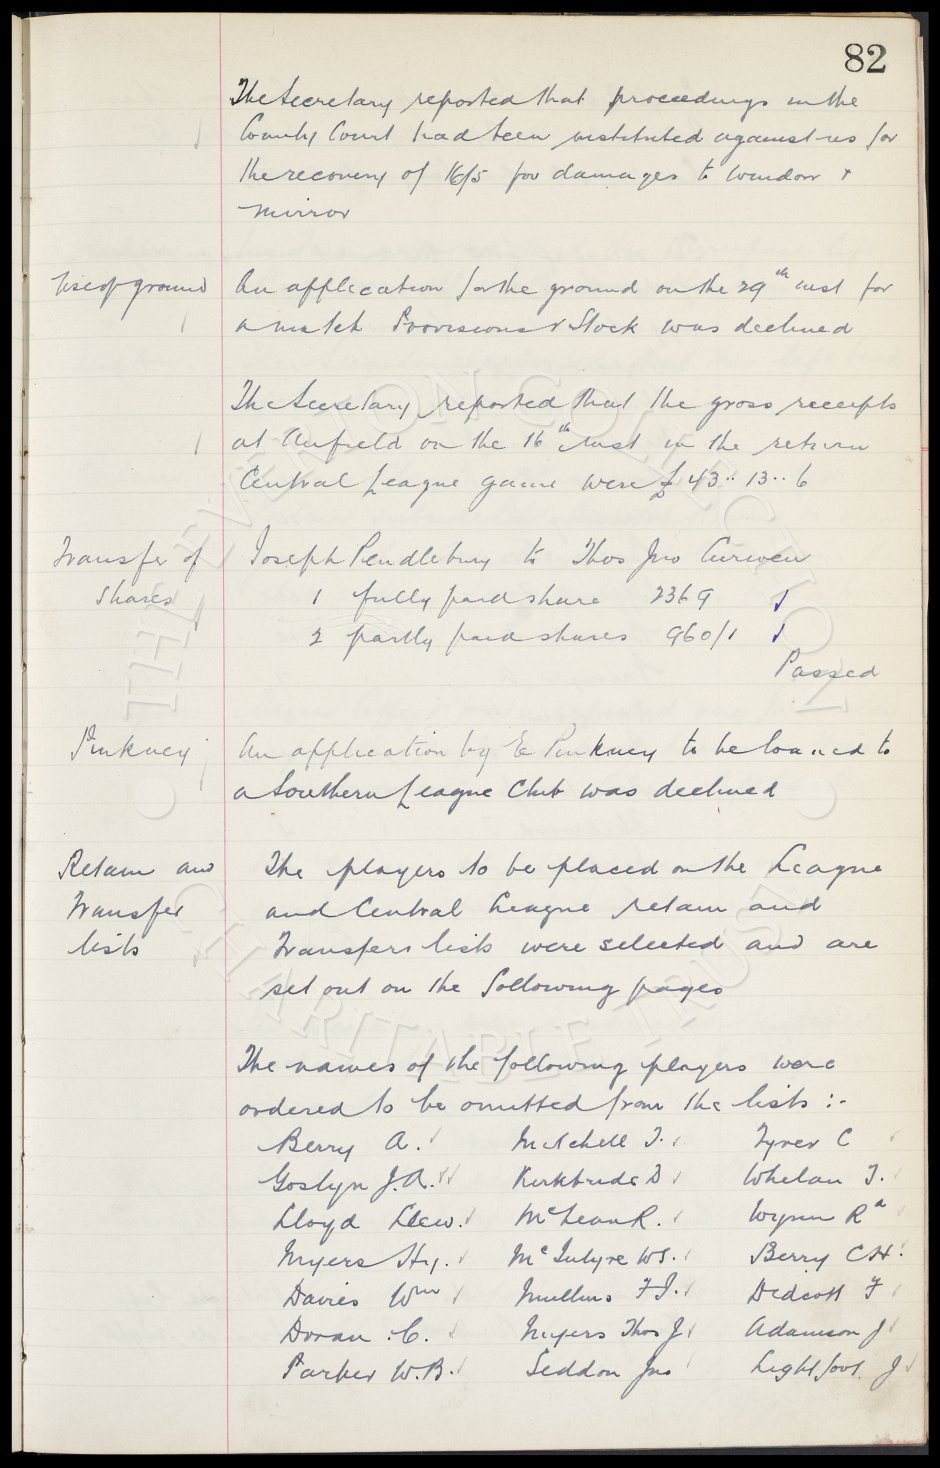 82
The Secretary reported that proceedings in the
County Court had been instituted against us for
the recovery of 16/5 for damages to window &
mirror
Use of ground
An application for the ground on the 29th inst for
a match Provisions v Stock was declined
The Secretary reported that the gross receipts
at Anfield on the 16th inst in the return
Central League game were £43..13..6
Transfer of
Shares
Joseph Pendlebury to Thos Jno Curwen
1 fully paid share 2369
2 partly paid shares 960/1
Passed
Pinkney
An application by E Pinkney to be loaned to
a Southern League Club was declined
Retain and
Transfer
lists
The players to be placed on the League
and Central League retain and
Transfers lists were selected and are
set out on the following pages
The names of the following players were
ordered to be omitted from the lists :-
Berry A. Mitchell T. Tyrer C
Goslyn J.A. Kirkbride D Whelan T.
Lloyd Llew. McLean R. Wynn Rd
Myers Hy. McIntyre WS. Berry CH.
Davies Wm Mullins F.J. Didcott F
Doran C. Myers Thos J Adamson J
Parker W.B. Seddon Jno Lightfoot J
THE EVERTON COLLECTION
CHARITABLE TRUST